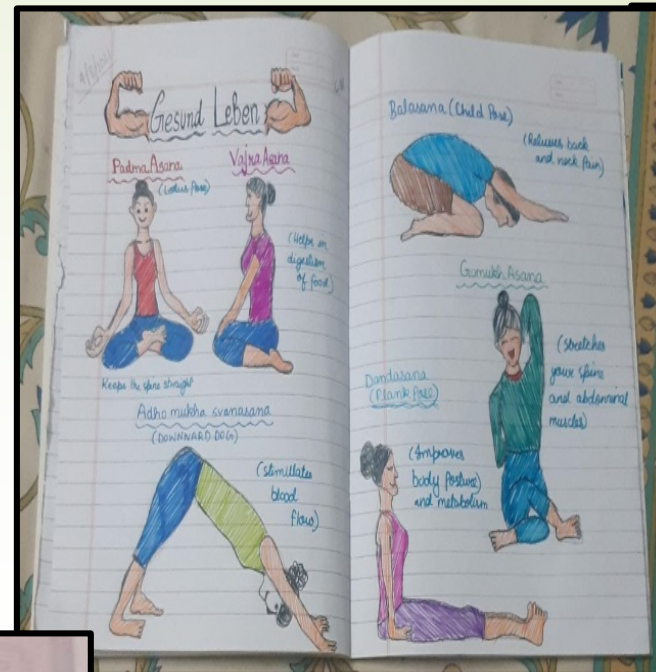 Gesund Leben
Padma Asana
(Lotus Pose)
Vajra Asana
(Helps in
digestion
of food)
Keeps the spine straight
Adho mukha svanasana
(DOWNWARD DOG)
(stimulates
blood
flow)
Balasana (Child Pose)
(Relieves back
and neck pain)
Gomukh Asana
(Stretches
your spine
and abdominal
muscles)
Dandasana
(Plank Pose)
(Improves
body Posture)
and metabolism